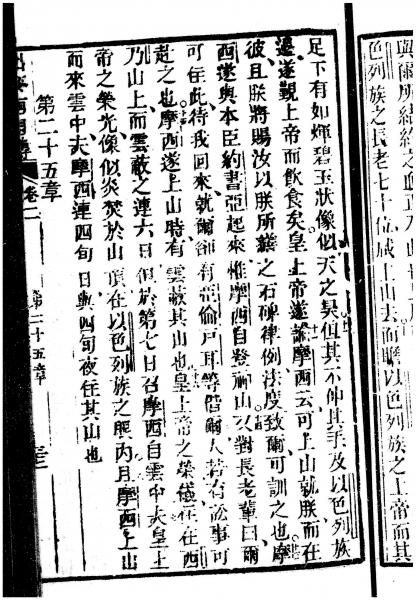 色列族之長老七十位咸上山去而瞻以色列族之上帝而其
足下有如輝碧玉狀像似天之昊但其不伸其手及以色列族
邊遂觀上帝而飲食矣皇上帝遂諭摩西云可上山就朕而在
彼且朕將賜汝以朕所纂之石碑律例法度致爾可訓之也摩
西遂與本臣約書亞起來惟摩西自登神山又對長老輩曰爾
可在此待我回來就爾卻有亞倫戶耳等偕爾人若有訟事可
赴之也摩西遂上山時有雲蔽其山也皇上帝之榮儀在在西
乃山上而雲蔽之連六日但於第七日召摩西自雲中夫皇上
帝之榮光像似炎焚於山頂在以色列族之眼內且摩西上山
而來雲中夫摩西連四旬日與四旬夜在其山也
第二十五章
卷二 第二十五章